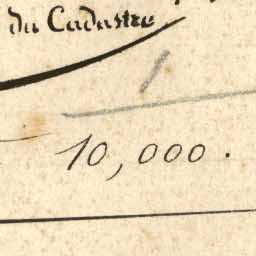 du Cadastre
1
10,000.